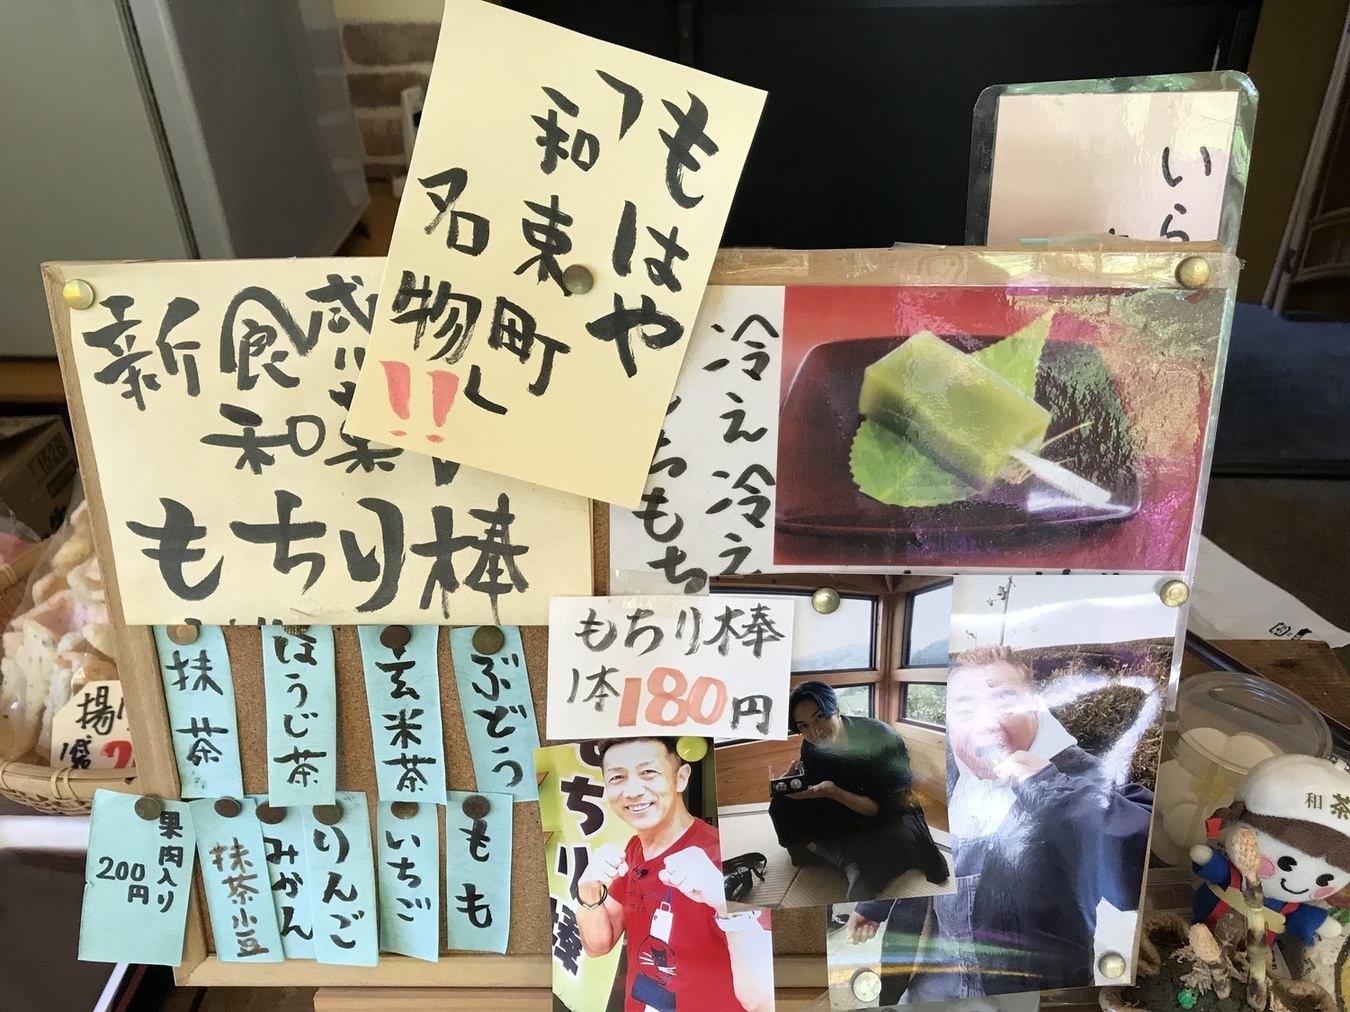 もはや
「和束町
名物」
!!
新食感
和菓
もちり棒
冷え冷え
もちもち
いら
もちり棒
1本180円
抹茶
ほうじ茶
玄米茶
ぶどう
果肉入り
200円
抹茶小豆
みかん
りんご
いちご
もも
もちり棒
揚
1袋
和茶